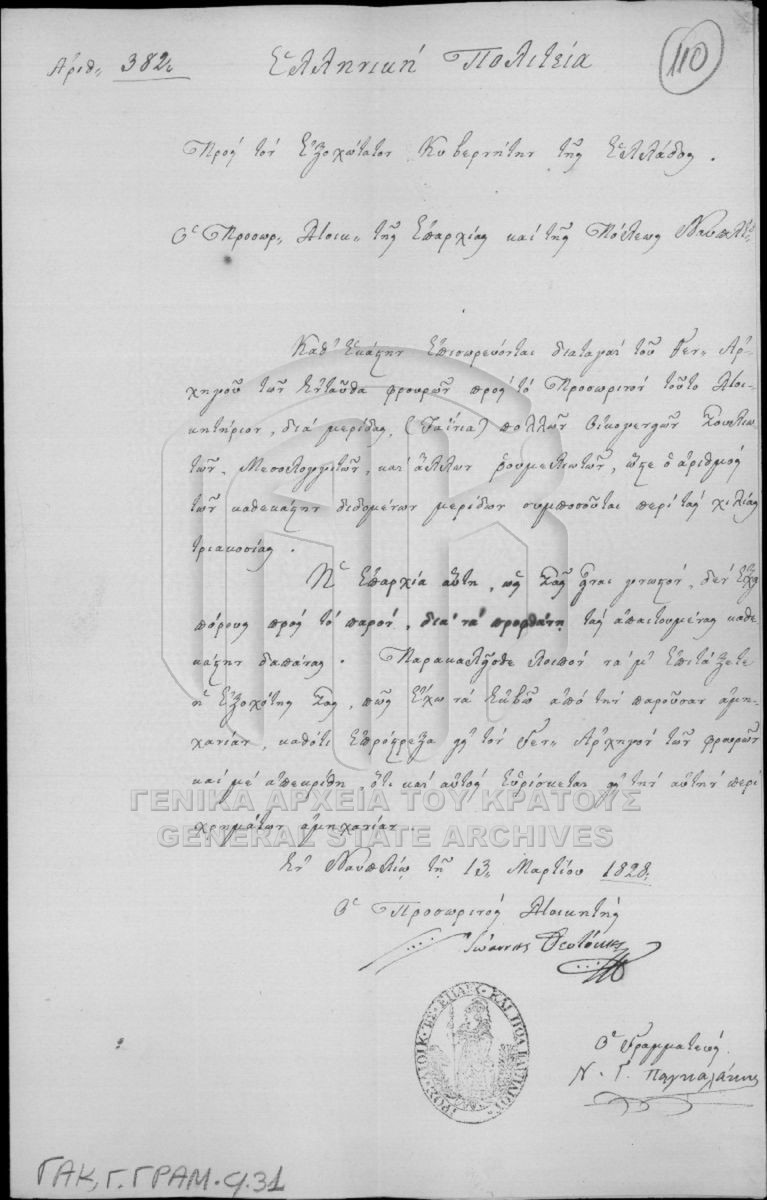 Ἀριθ. 382.
Ἑλληνικὴ Πολιτεία
110
Πρὸς τὸν Ἐξοχώτατον Κυβερνήτην τῆς Ἑλλάδος.
Ὁ Προσωρ. Διοικ. τῆς Ἐπαρχίας καὶ τῆς Πόλεως Ναυπλίου
Καθ' ἑκάστην ἐπισωρεύονται διαταγαὶ τοῦ Γεν. Ἀρ-
χηγοῦ τῶν ἐνταῦθα φρουρῶν πρὸς τὸ Προσωρινὸν τοῦτο Διοι-
κητήριον, διὰ μερίδας, (ταΐνια) πολλῶν οἰκογενειῶν Σουλιω-
τῶν, Μεσολογγιτῶν, καὶ ἄλλων Ῥουμελιωτῶν, ὥστε ὁ ἀριθμὸς
τῶν καθεκάστην διδομένων μερίδων συμποσοῦται περὶ τὰς χιλίας
τριακοσίας.
Ἡ Ἐπαρχία αὕτη, ὡς Σᾶς εἶναι γνωστόν, δὲν ἔχει
πόρους πρὸς τὸ παρόν, διὰ νὰ προφθάνῃ τὰς ἀπαιτουμένας καθε-
κάστην δαπάνας. Παρακαλεῖσθε λοιπὸν νὰ μ' ἐπιτάξετε
ἡ Ἐξοχότης Σας, πῶς ἔχω νὰ ἐκβῶ ἀπὸ τὴν παροῦσαν ἀμη-
χανίαν, καθότι ἐπρόστρεξα εἰς τὸν Γεν. Ἀρχηγὸν τῶν φρουρῶν
καὶ μὲ ἀπεκρίθη, ὅτι καὶ αὐτὸς εὑρίσκεται εἰς τὴν αὐτὴν περὶ
χρημάτων ἀμηχανίαν.
ΓΕΝΙΚΑ ΑΡΧΕΙΑ ΤΟΥ ΚΡΑΤΟΥΣ
GENERAL STATE ARCHIVES
Ἐν Ναυπλίῳ τῇ 13. Μαρτίου 1828.
Ὁ Προσωρινὸς Διοικητὴς
Ἰωάννης Θεοτόκης
Ὁ Γραμματεύς.
Ν. Γ. Παγκαλάκης
ΓΑΚ, Γ. ΓΡΑΜ. φ.31